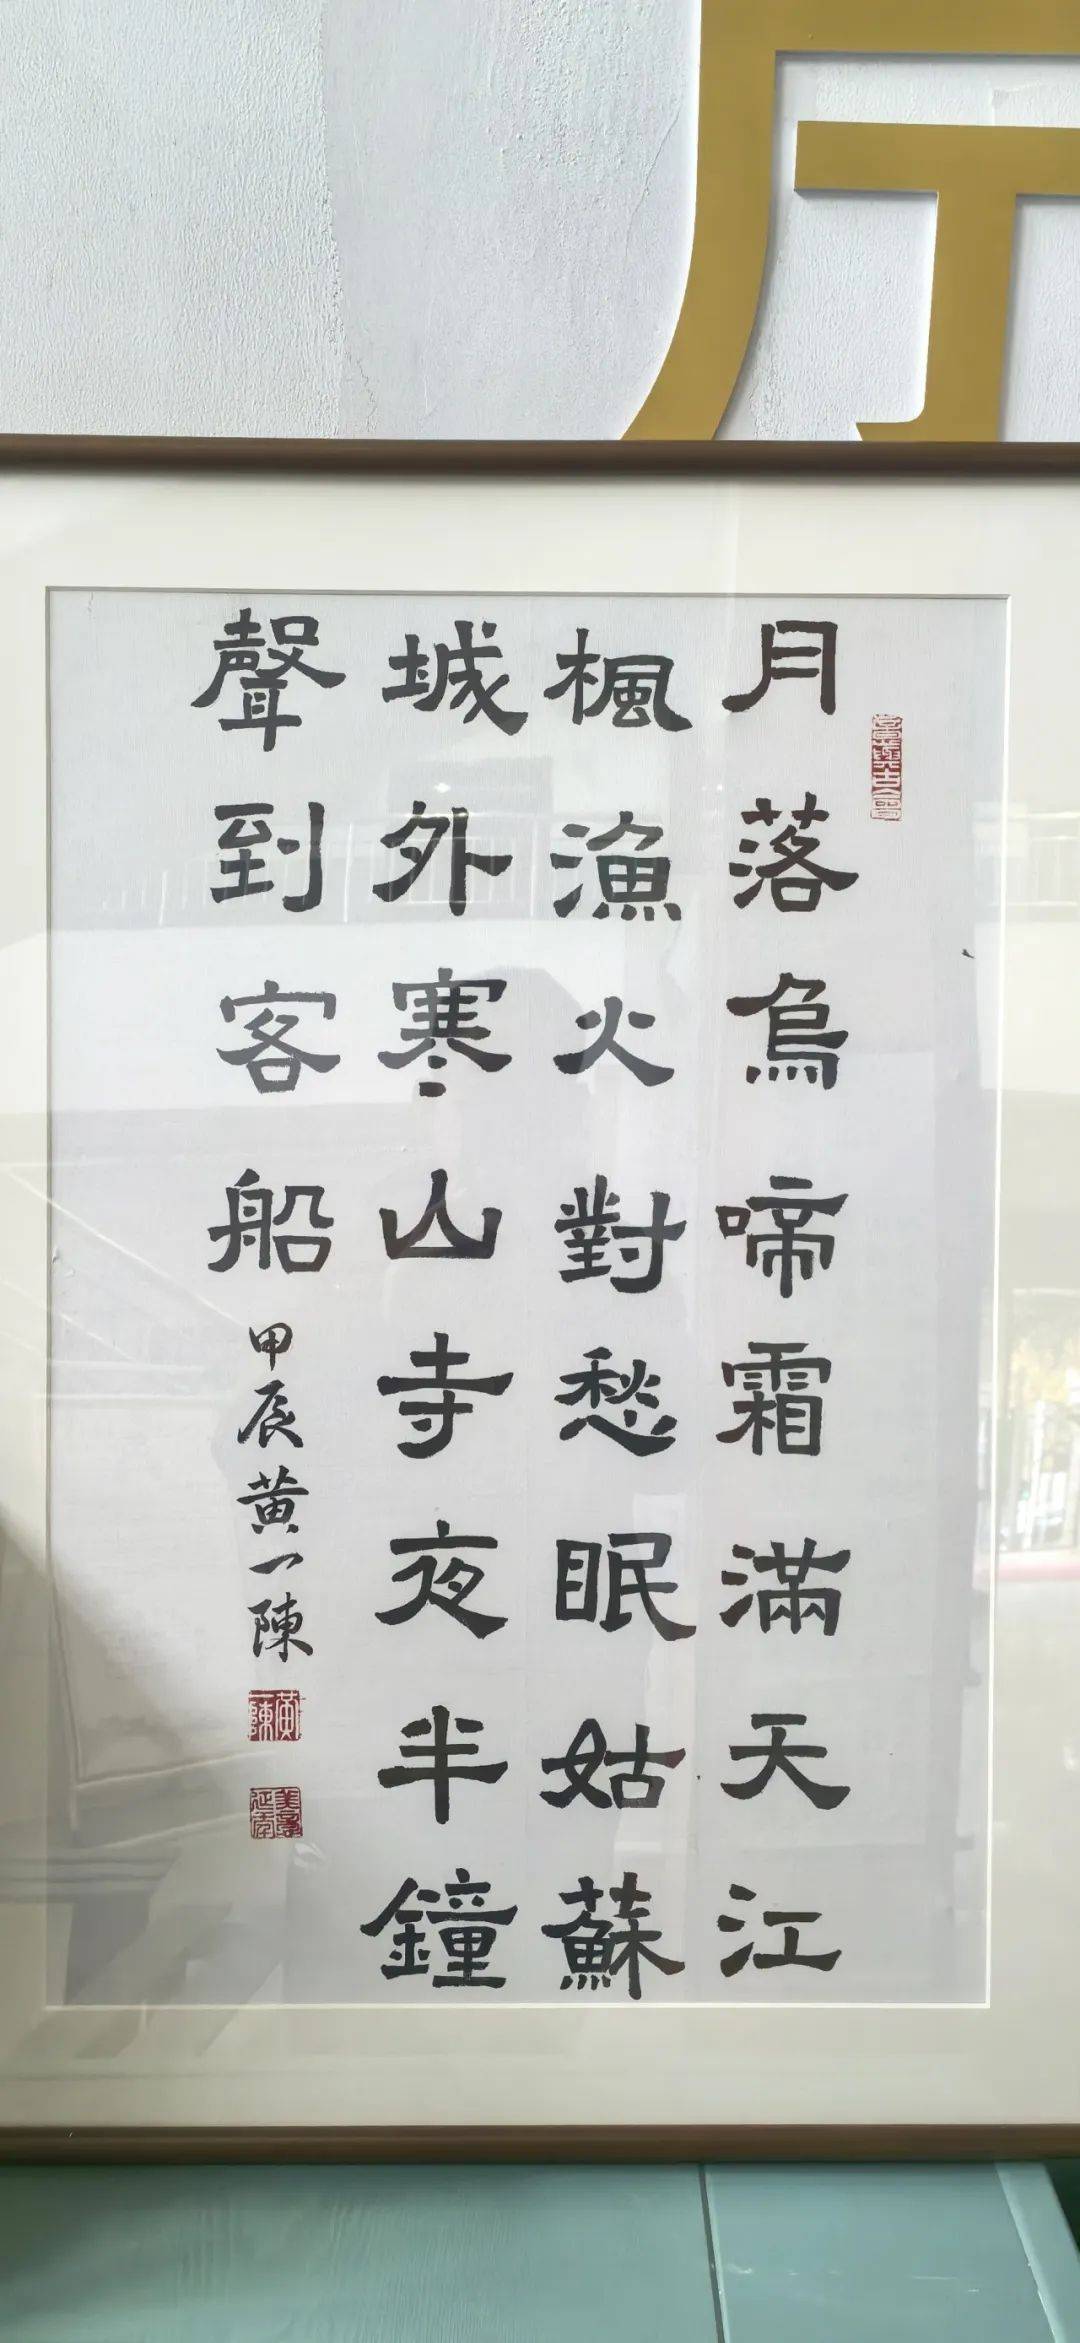 月落烏啼霜滿天江
楓漁火對愁眠姑蘇
城外寒山寺夜半鐘
聲到客船
甲辰黄一陳
黄一陳
美意延年